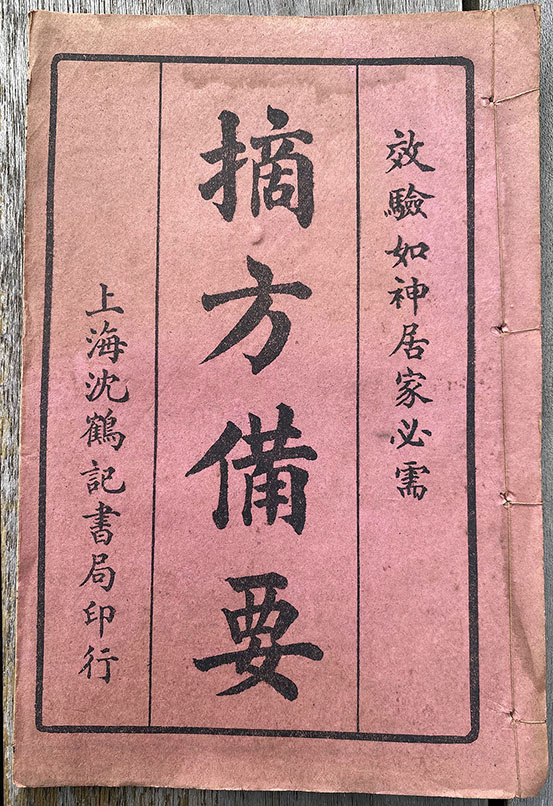 效驗如神居家必需
摘方備要
上海沈鶴記書局印行